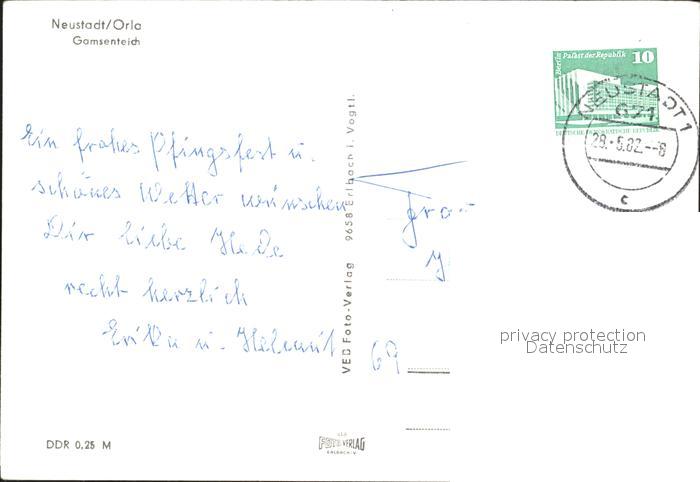 Neustadt/Orla
Gamsenteich
Berlin Palast der Republik 10
DEUTSCHE DEMOKRATISCHE REPUBLIK
NEUSTADT 1
29.-5.82.--8
c
Ein frohes Pfingsfest u.
schönes Wetter wünschen
Dir liebe Hede
recht herzlich
Erika u. Helmut
VEB Foto-Verlag 9658 Erlbach i. Vogtl.
69
privacy protection
Datenschutz
DDR 0,25 M
FOTO VERLAG
ERLBACH V.